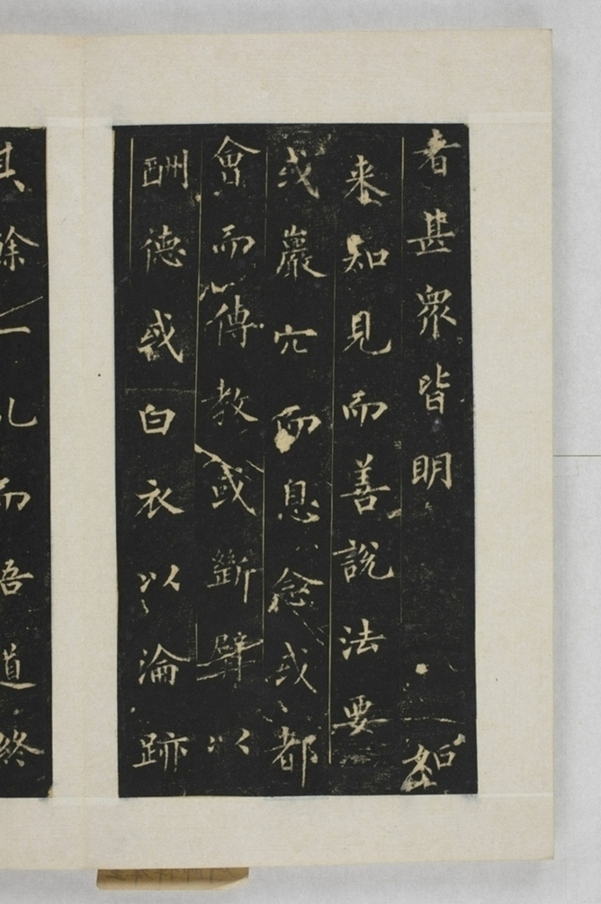 者甚衆皆明如
来知見而善說法要
或巖穴而息念或都
會而傳教或斷臂以
酬德或白衣以淪跡
其餘一礼而悟道終